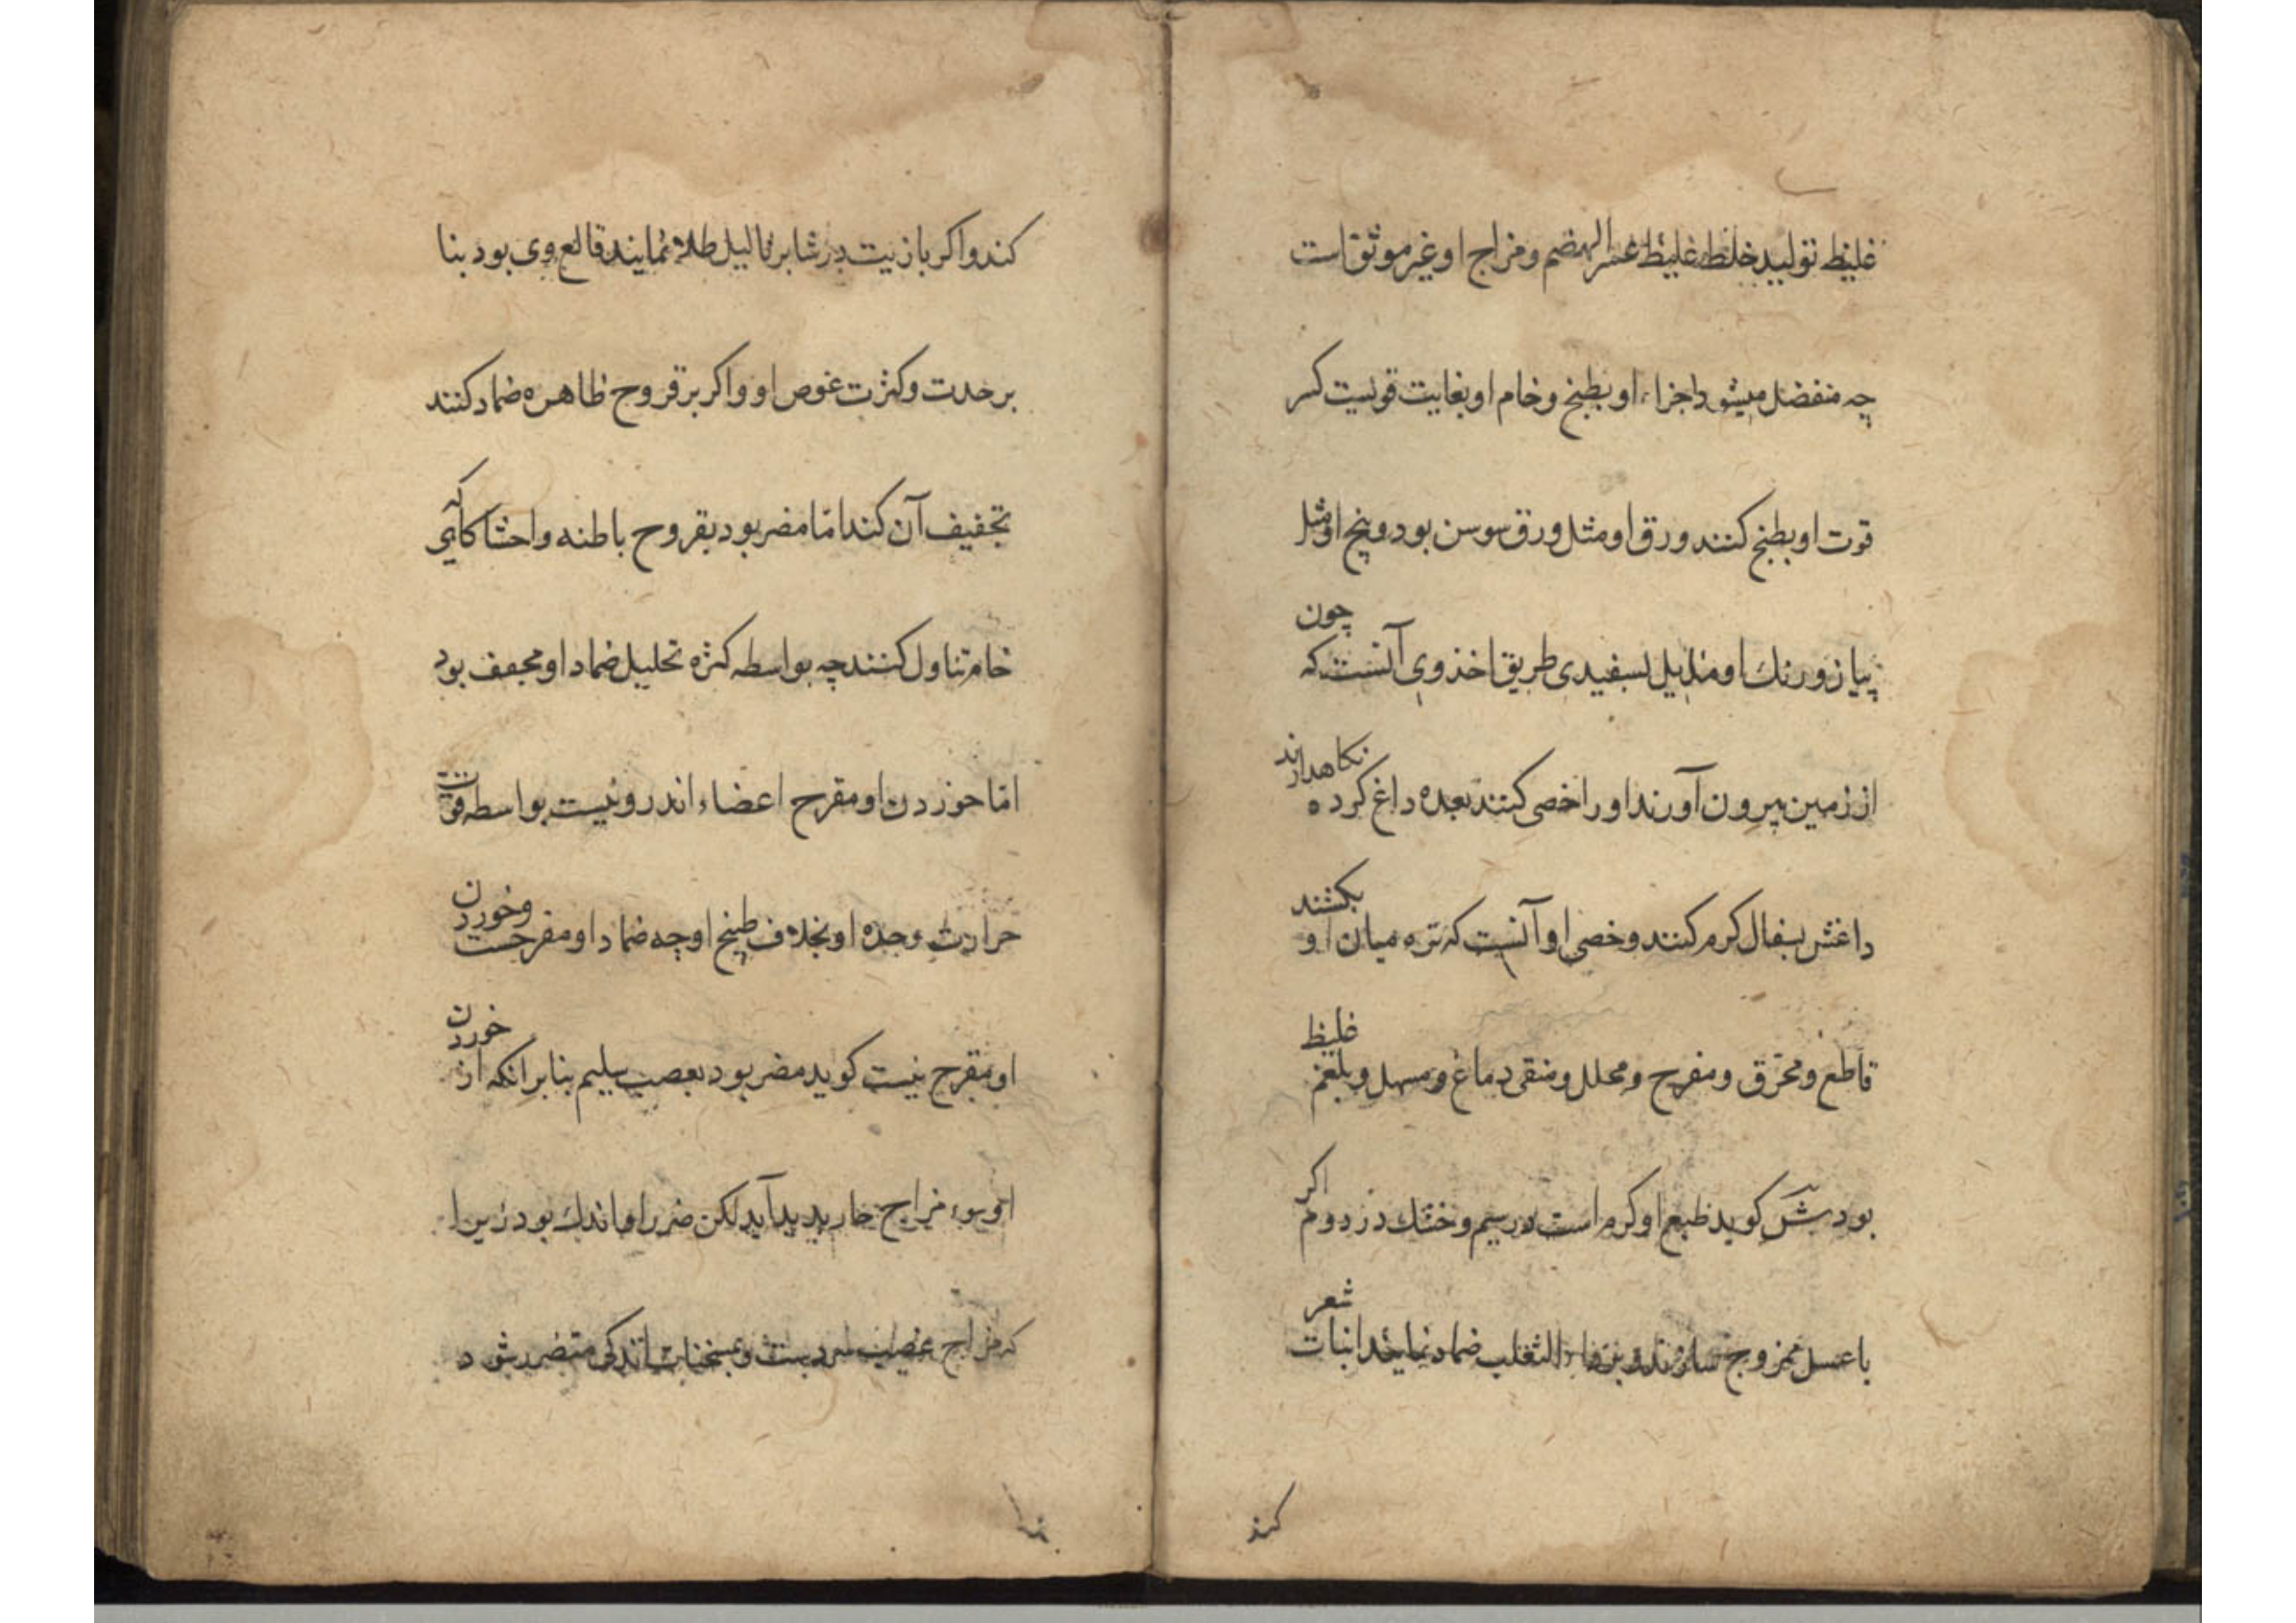 غلیظ تولید خلط غلیظ عسر الهضم و مزاج او غیر موثق است
چه منفصل میشود اجزاء او بطبخ و خام او بغایت قویست کسر
قوت او بطبخ کنند ورق او مثل ورق سوسن بود و بیخ او مثل
پیاز و رنک او مایل بسفیدی طریق اخذ وی آنست که چون
از زمین بیرون آورند او را خصی کنند بعده داغ کرده نکاهدارند
داغش بسفال کرم کنند و خصی او آنست که تره میان او بکشند
قاطع و محرق و مقرح و محلل و منقی دماغ و مسهل و بلغم غلیظ
بود ش کوید طبع او کرم است در سیم و خشک در دوم اکر
با عسل ممزوج سازند و بر داء الثعلب ضماد نمایند انبات شعر
کند
کند و اکر با زیت بر ثالیل طلا نمایند قالع وی بود بنا
بر حدت و کثرت غوص او و اکر بر قروح ظاهره ضماد کنند
تجفیف آن کند اما مضر بود بقروح باطنه و احشا کاهی که
خام تناول کنند چه بواسطه کثره تحلیل ضماد او مجفف بود
اما خوردن او مقرح اعضاء اندرونیست بواسطه قوت
حرارت و حده او بخلاف طبیخ او چه ضماد او مقرحست و خوردن
او مقرح نیست کوید مضر بود بعصب سلیم بنابر انکه از خوردن
او سوء مزاج حار پدید آید لکن ضرر او اندک بود زیرا
که مزاج عصب سردست و بمسخنات اندکی متضرر شود